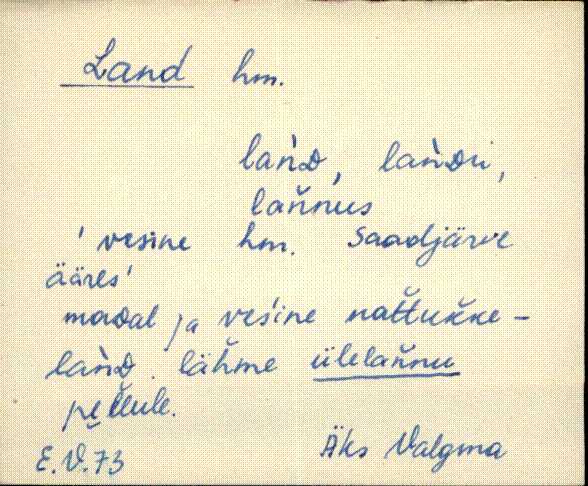 Land hm.
lań̀ᴅ, lań̀ᴅi,
lańnus
'vesine hm. Saadjärve
ääres'
maᴅal ja veśine nat́tukke-
lań̀ᴅ. lähme ülelańnu
pe̮l̆lule.
E.V.73 Äks Valgma